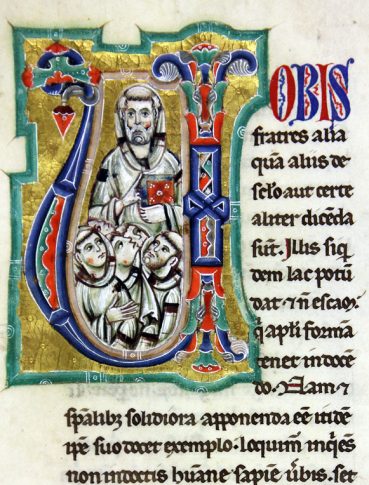 VOBIS
fratres alia
quā aliis de
sclo aut certe
aliter dicēda
sūt. Illis siqi
dem lac potū
dat ⁊ n̄ escam.
q̇ apli formā
tenet in docē
do. Nam ⁊
spālib; solidiora apponenda eē itidē
ipē suo docet exemplo. loquim̄ inq̇ēs
non in doctis huāne sapiē ūbis. set